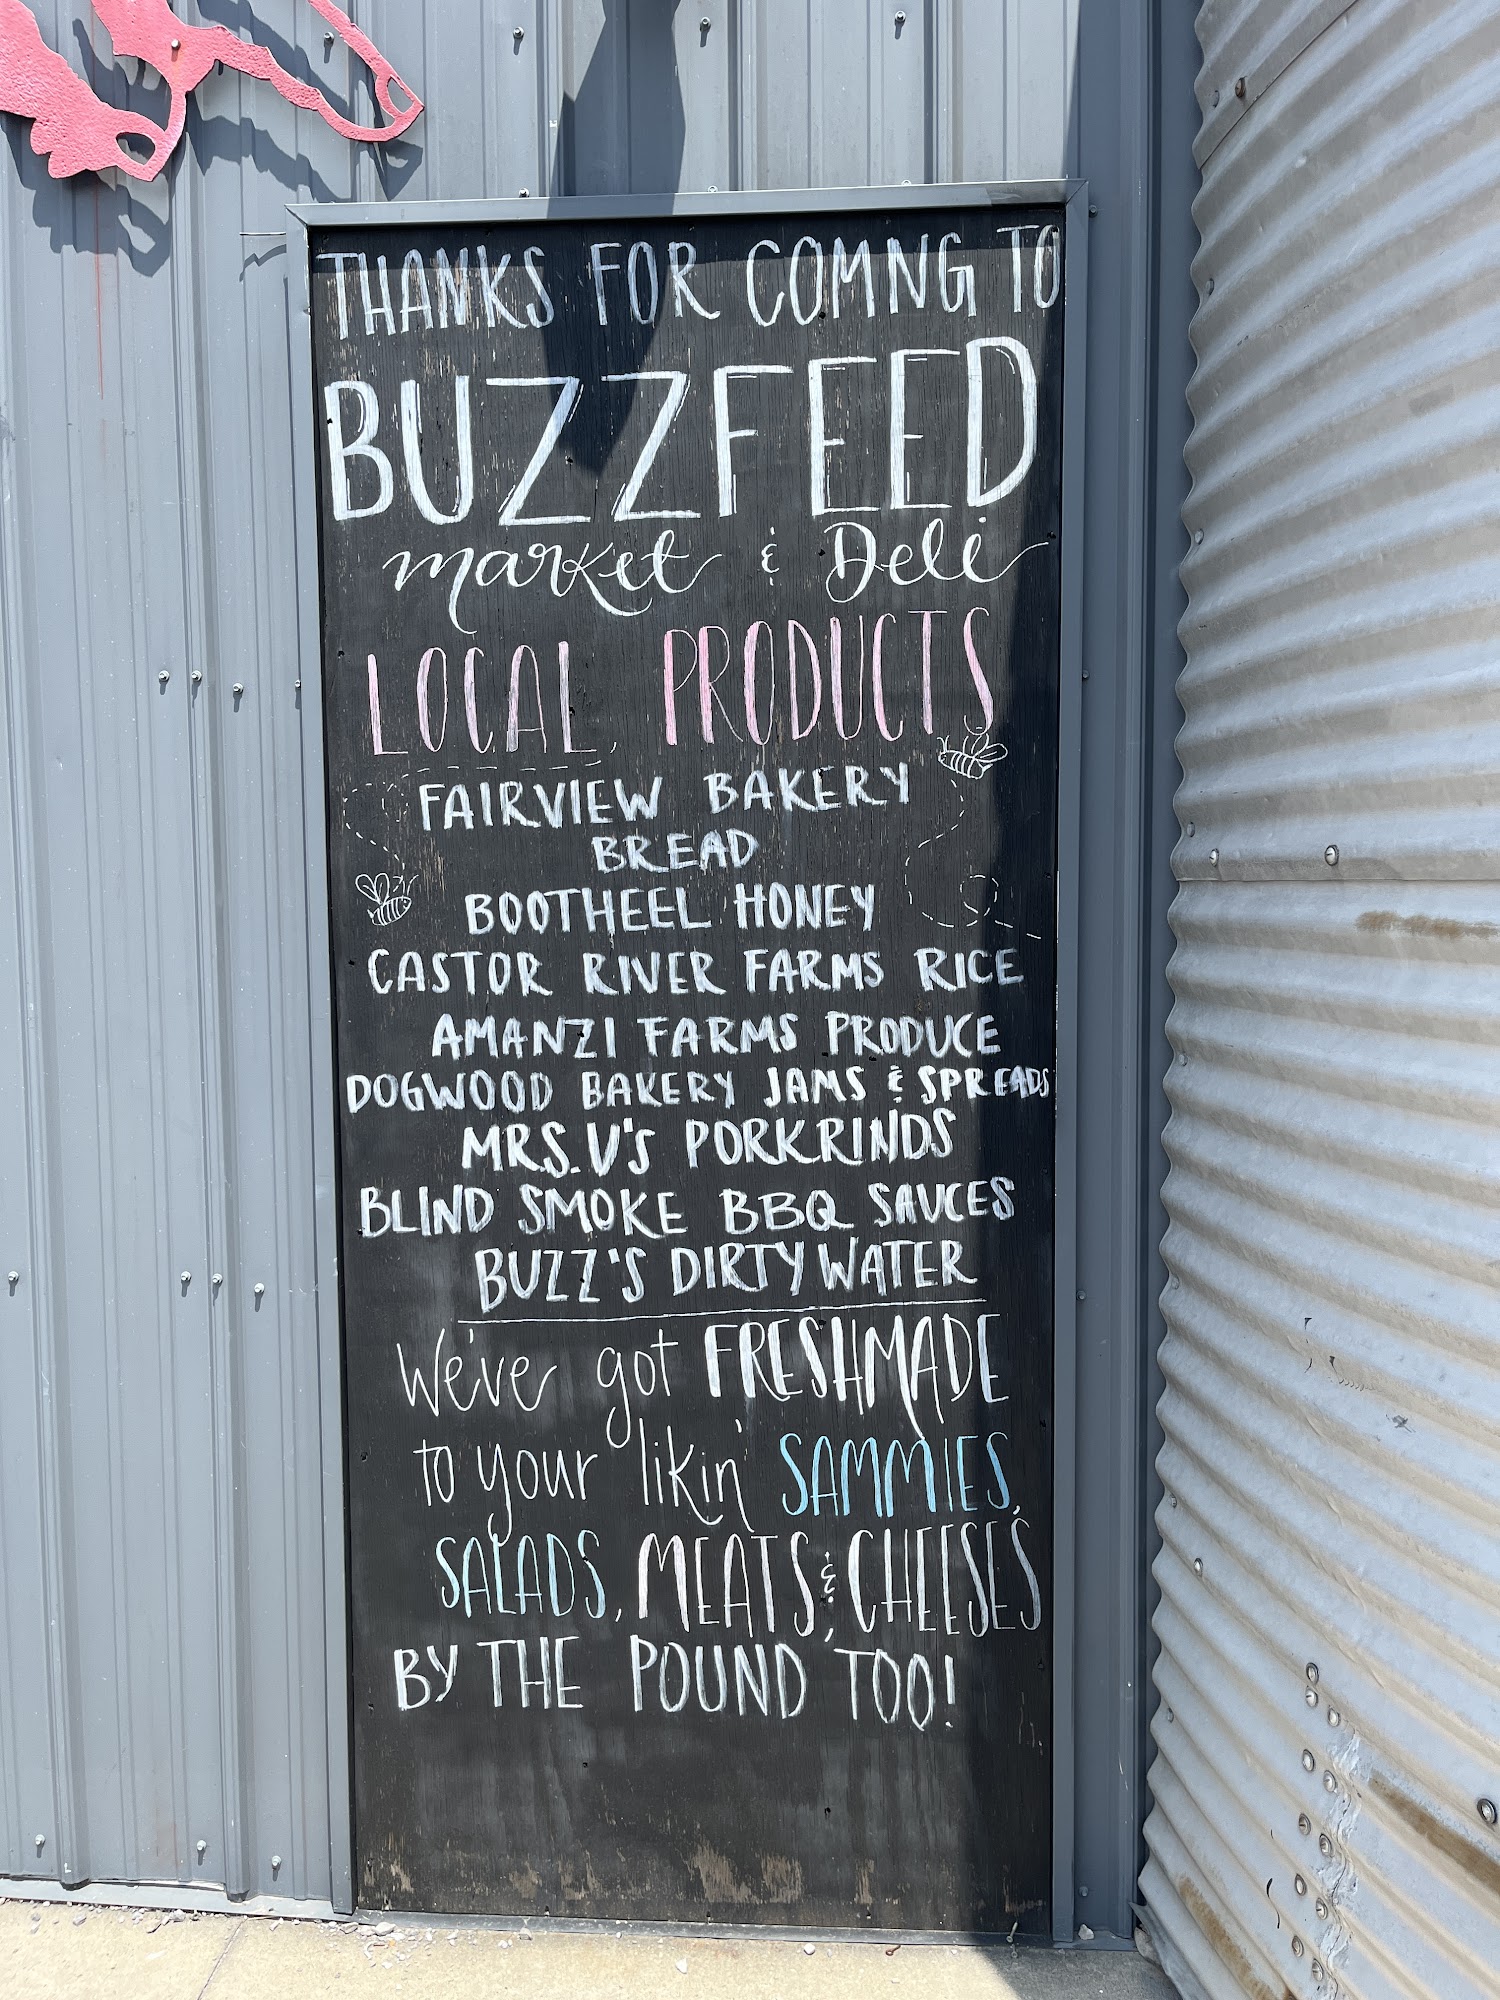 THANKS FOR COMNG TO
BUZZFEED
market & Deli
LOCAL PRODUCTS
FAIRVIEW BAKERY
BREAD
BOOTHEEL HONEY
CASTOR RIVER FARMS RICE
AMANZI FARMS PRODUCE
DOGWOOD BAKERY JAMS & SPREADS
MRS. V'S PORKRINDS
BLIND SMOKE BBQ SAUCES
BUZZ'S DIRTY WATER
We've got FRESHMADE
to your likin' SAMMIES,
SALADS, MEATS & CHEESES
BY THE POUND, TOO!